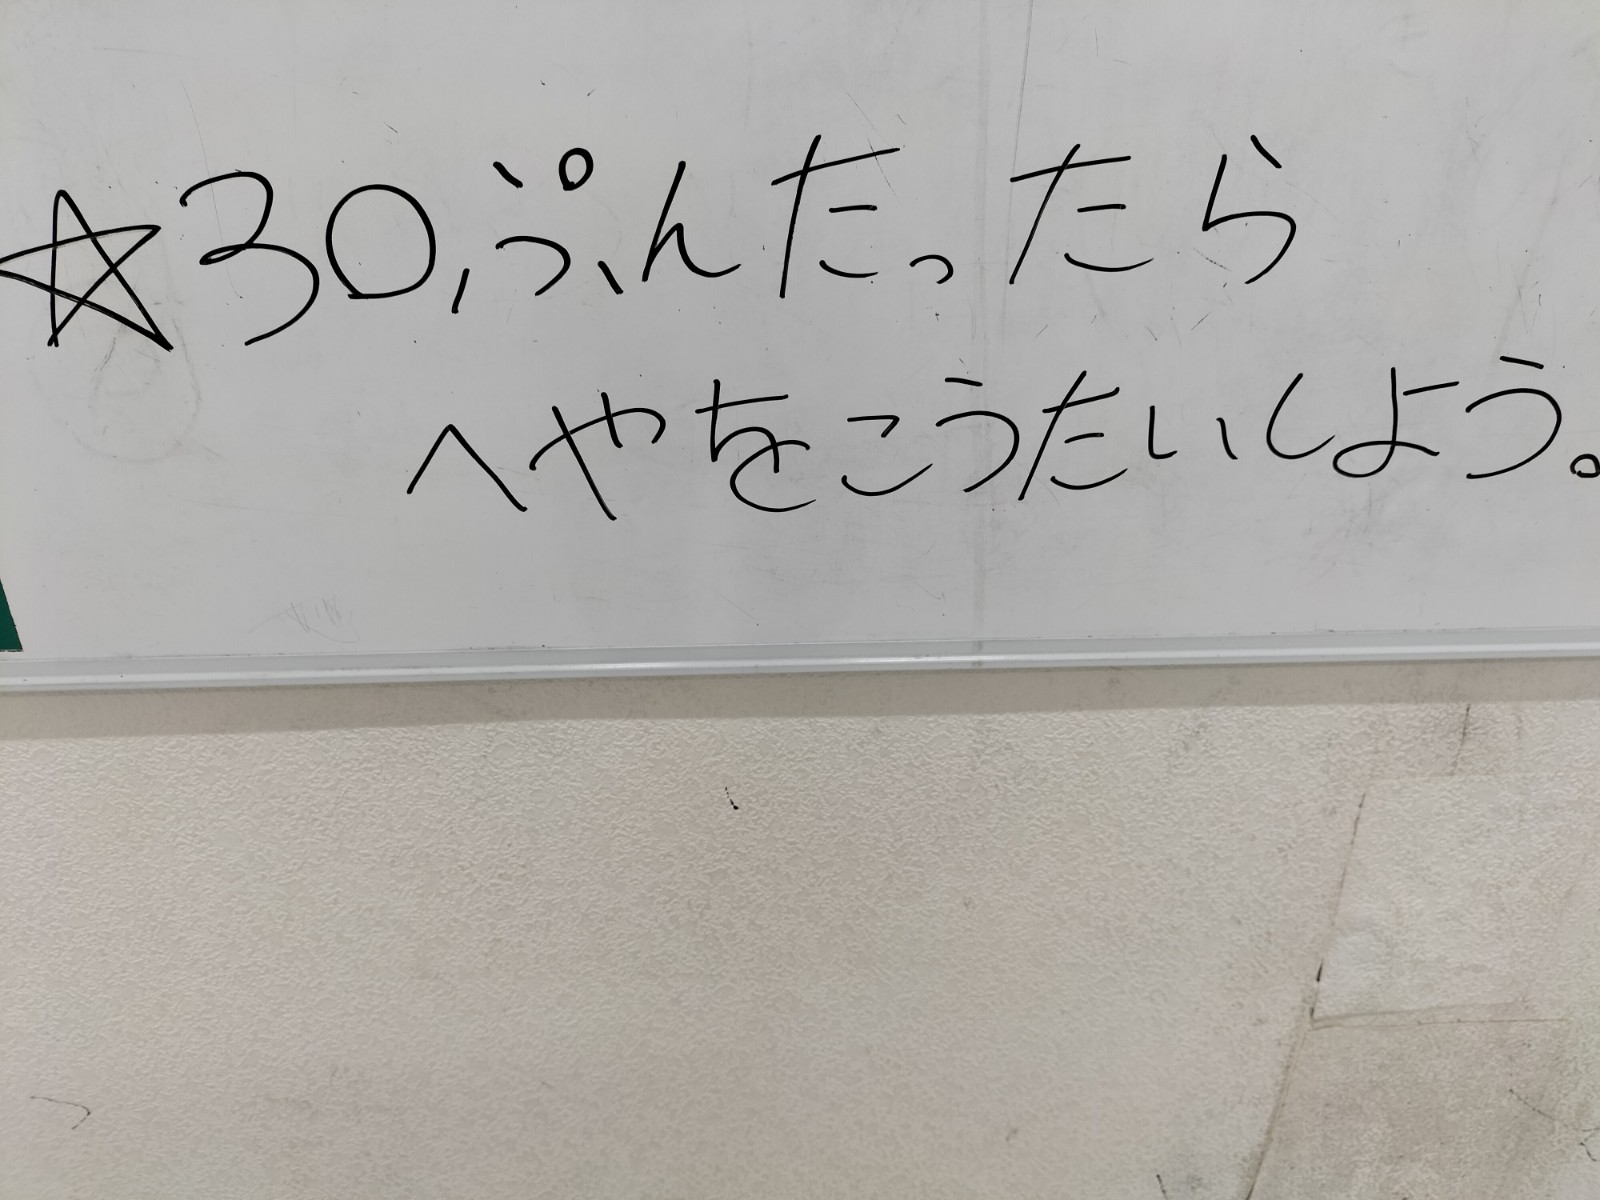 ☆30ぷんだったら
へやをこうたいしよう。